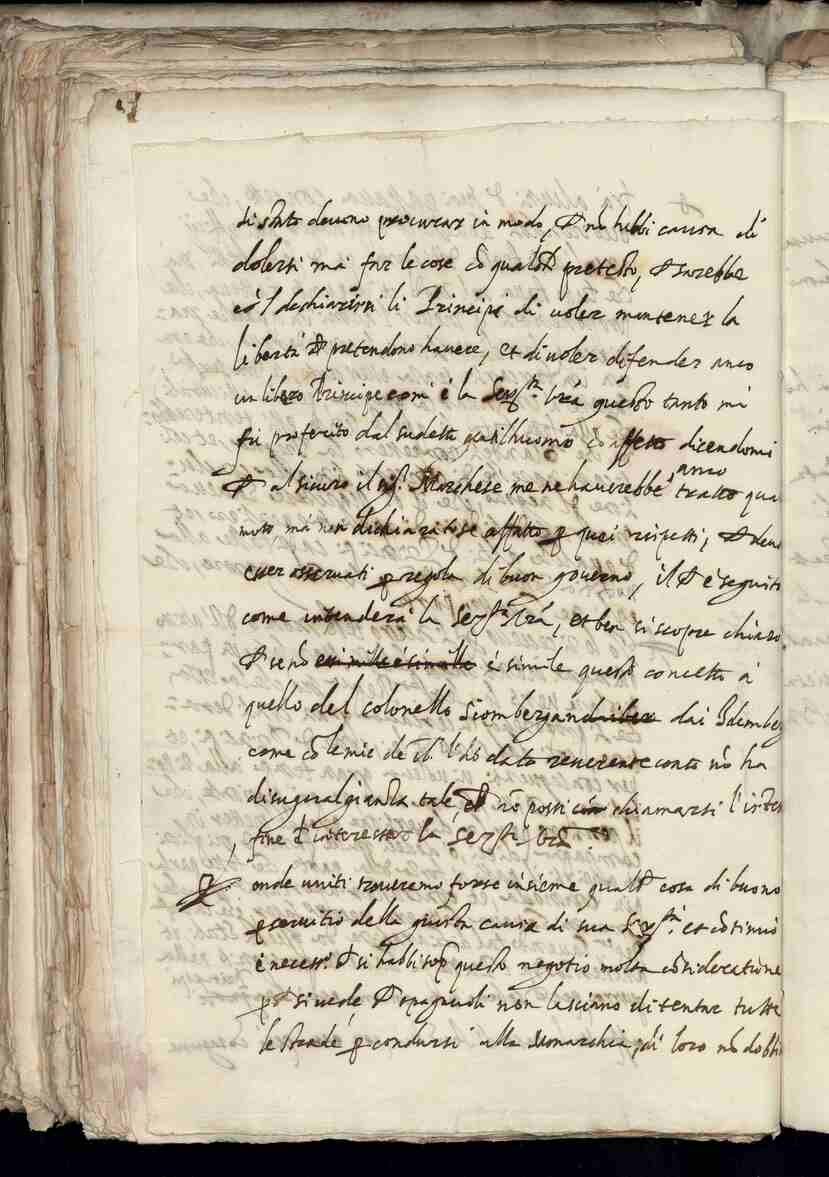 di stato deuono procurar in modo, che nõ habbi causa di
dolersi mà far le cose cõ qualche pretesto, che sarebbe
il dechiararsi li Principi di uoler mantener la
libertà che pretendono hauere, et di uoler difender anco
un libero Principe com' è la Serᵗᵃ Vrã questo tanto mi
fù proferito dal sudetto gentilhuomo cõ affetto dicendomi
che al sicuro il sigʳ Marchese me ne hauerebbe anco trattato qua
moto, mà non dichiaratose affatto ꝑ quei rispetti, che deuo
esser osseruati ꝑ regola di buon gouerno, il che è seguito
come intenderà la Serᵗᵃ Vrã, et ben si scopre chiaro
che sendo è simile questo concetto à
quello del colonello dai
come cõ le mie dato reuerente conto nõ ha
disugualgianza tale, che nõ possi chiamarsi l'istesso
fine d'interesse la Serᵗᵃ Vrã
onde uniti troueremo forse insieme qualche cosa di buono
ꝑ seruitio della giusta causa di sua Serᵗᵃ et cõtinuo
è necessº che si habbi sopᵃ questo negotio molta cõsideratione
ꝑche si uede che spagnuoli non lasciano di tentar tutte
le strade ꝑ condursi alla Monarchia, di loro nõ dobbi